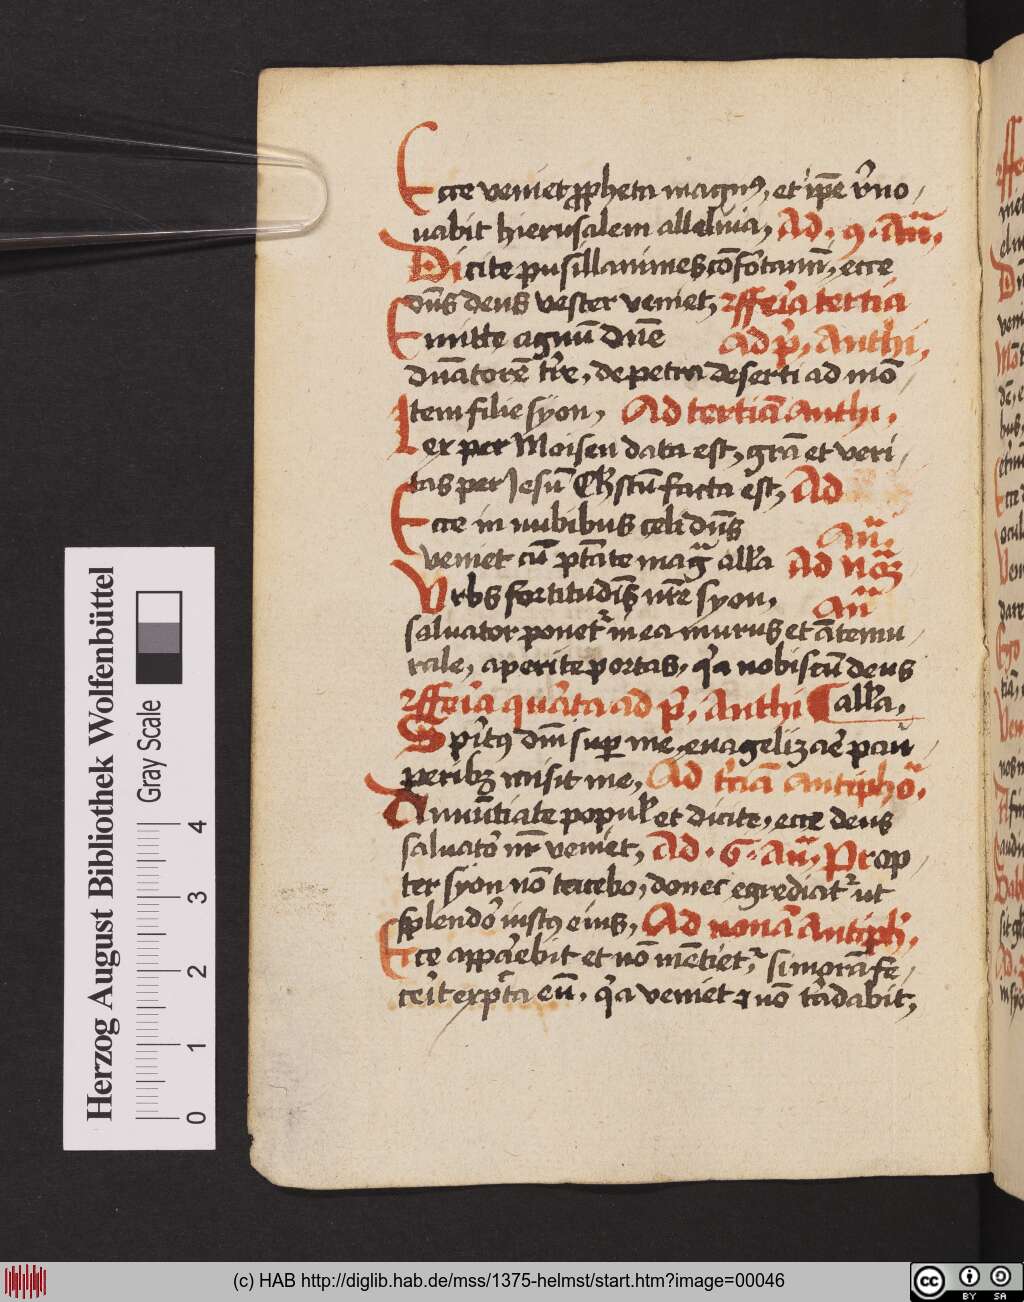 Ecce veniet ꝓpheta magnꝰ, et ip̄e r̄no
vabit hierusalem alleluia, Ad . 9 . An̄.
Dicite pusillanimes cōfōtam̄, ecce
dn̄s deus vester veniet, Fferia tertia
Emitte agnū dn̄e Ad p̄. Anthi.
dn̄atorē tr̄e, de petra deserti ad mō
tem filie syon, Ad tertiā anthi.
Lex per Moisen data est, gr̄a et veri
tas per Jesū Chr̄stū facta est, Ad
Ecce in nubibus celi dn̄s
An̄.
veniet cū pt̄ate maḡ all̄a Ad no
Vrbs fortitudīs nr̄e syon,
An̄
saluator ponet̄ in ea murus et ātemu
rale, aperite portas, q̄a nobiscū deus
Fferia quarta ad p̄. Anthi all̄a.
Spīrtꝰ dn̄i suꝑ me, euāgelizar̄e pau
peribꝫ misit me, Ad tr̄ciā antiphō.
Annūtiate popul̄ et dicite, ecce deus
saluatō nr̄ veniet, Ad . 6 . An̄. Prop
ter syon nō tacebo, donec egrediat̄ ut
splendō iustꝰ eius, Ad nonā Antiph̄.
Ecce apparebit et nō mētiet̄, si morā fe
cerit expc̄ta eū, q̄a veniet ⁊ nō tardabit,
Herzog August Bibliothek Wolfenbüttel
Gray Scale
0 1 2 3 4
(c) HAB http://diglib.hab.de/mss/1375-helmst/start.htm?image=00046
cc BY SA